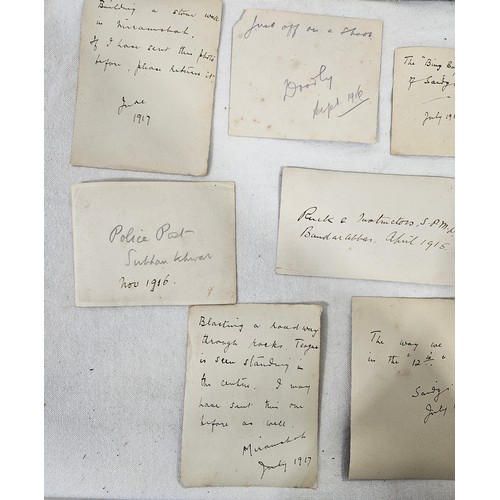 Building a stone wall
in Miramshah.
If I have sent this photo
before, please return it.
June
1917
Just off on a shoot
Dosaly
Sept. 1916
The "Bing
July 191
Police Post
Subhan Khwar
Nov 1916.
Ruck & Instructors, S.P.M.
Bandar Abbas. April 1915.
Blasting a roadway
through rocks. Teague
is seen standing in
the centre. I may
have sent this one
before as well.
Miramshah
July 1917
The way we
in the "12
July